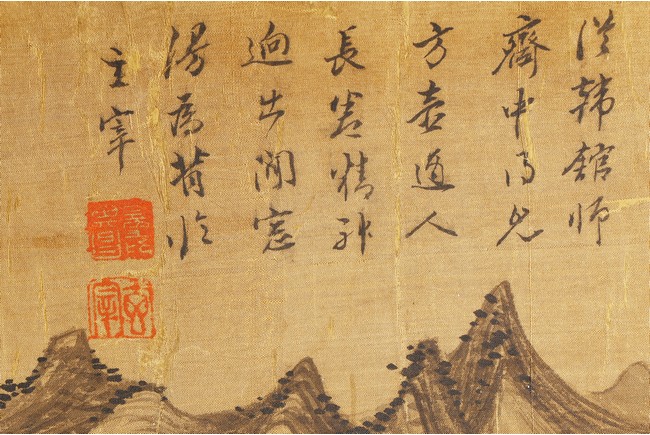 從韓館師
齋中得見
方壺道人
長卷精神
迥出閒窓
漫為背臨
玄宰